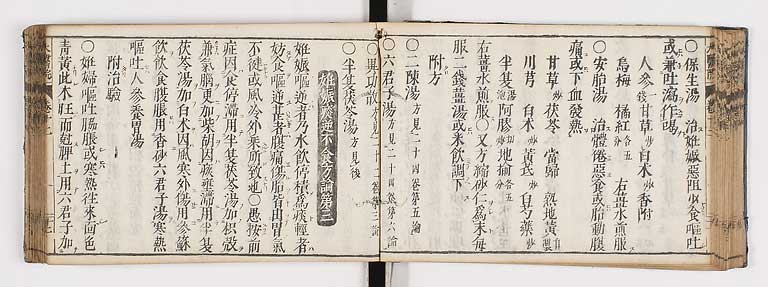 ○保生湯 治妊娠惡阻少食嘔吐
或兼吐瀉作喝
人參 甘草 白术炒 香附
烏梅 橘紅各五 右薑水煎服
○安胎湯 治體倦惡食或胎動腹
痛或下血發熱
甘草炒 茯苓 當歸 熟地黃
川芎 白术炒 黃芪炒 白芍藥炒
半夏 阿膠炒 地榆各五
右薑水煎服○又方縮砂仁爲末每
服二錢薑湯或米飲調下
附方
○二陳湯方見二十四卷第五論
○六君子湯方見二十四卷第六論
○異功散方見二十二卷第三論
○半夏茯苓湯方見後
妊娠嘔逆不食方論第三
妊娠嘔逆者乃水飲停積爲痰輕者
妨食嘔逆甚者腹痛傷胎皆由胃氣
不徤或風冷外乘所致也○愚按前
症因食停滯用半夏茯苓湯加枳殼
兼氣惱更加柴胡因痰壅滯用半夏
茯苓湯加白术因風寒外傷用參蘇
飲飲食腹脹用香砂六君子湯寒熱
嘔吐人參養胃湯
附治驗
○妊婦嘔吐脇脹或寒熱往來面色
青黃此木旺而尅脾土用六君子加